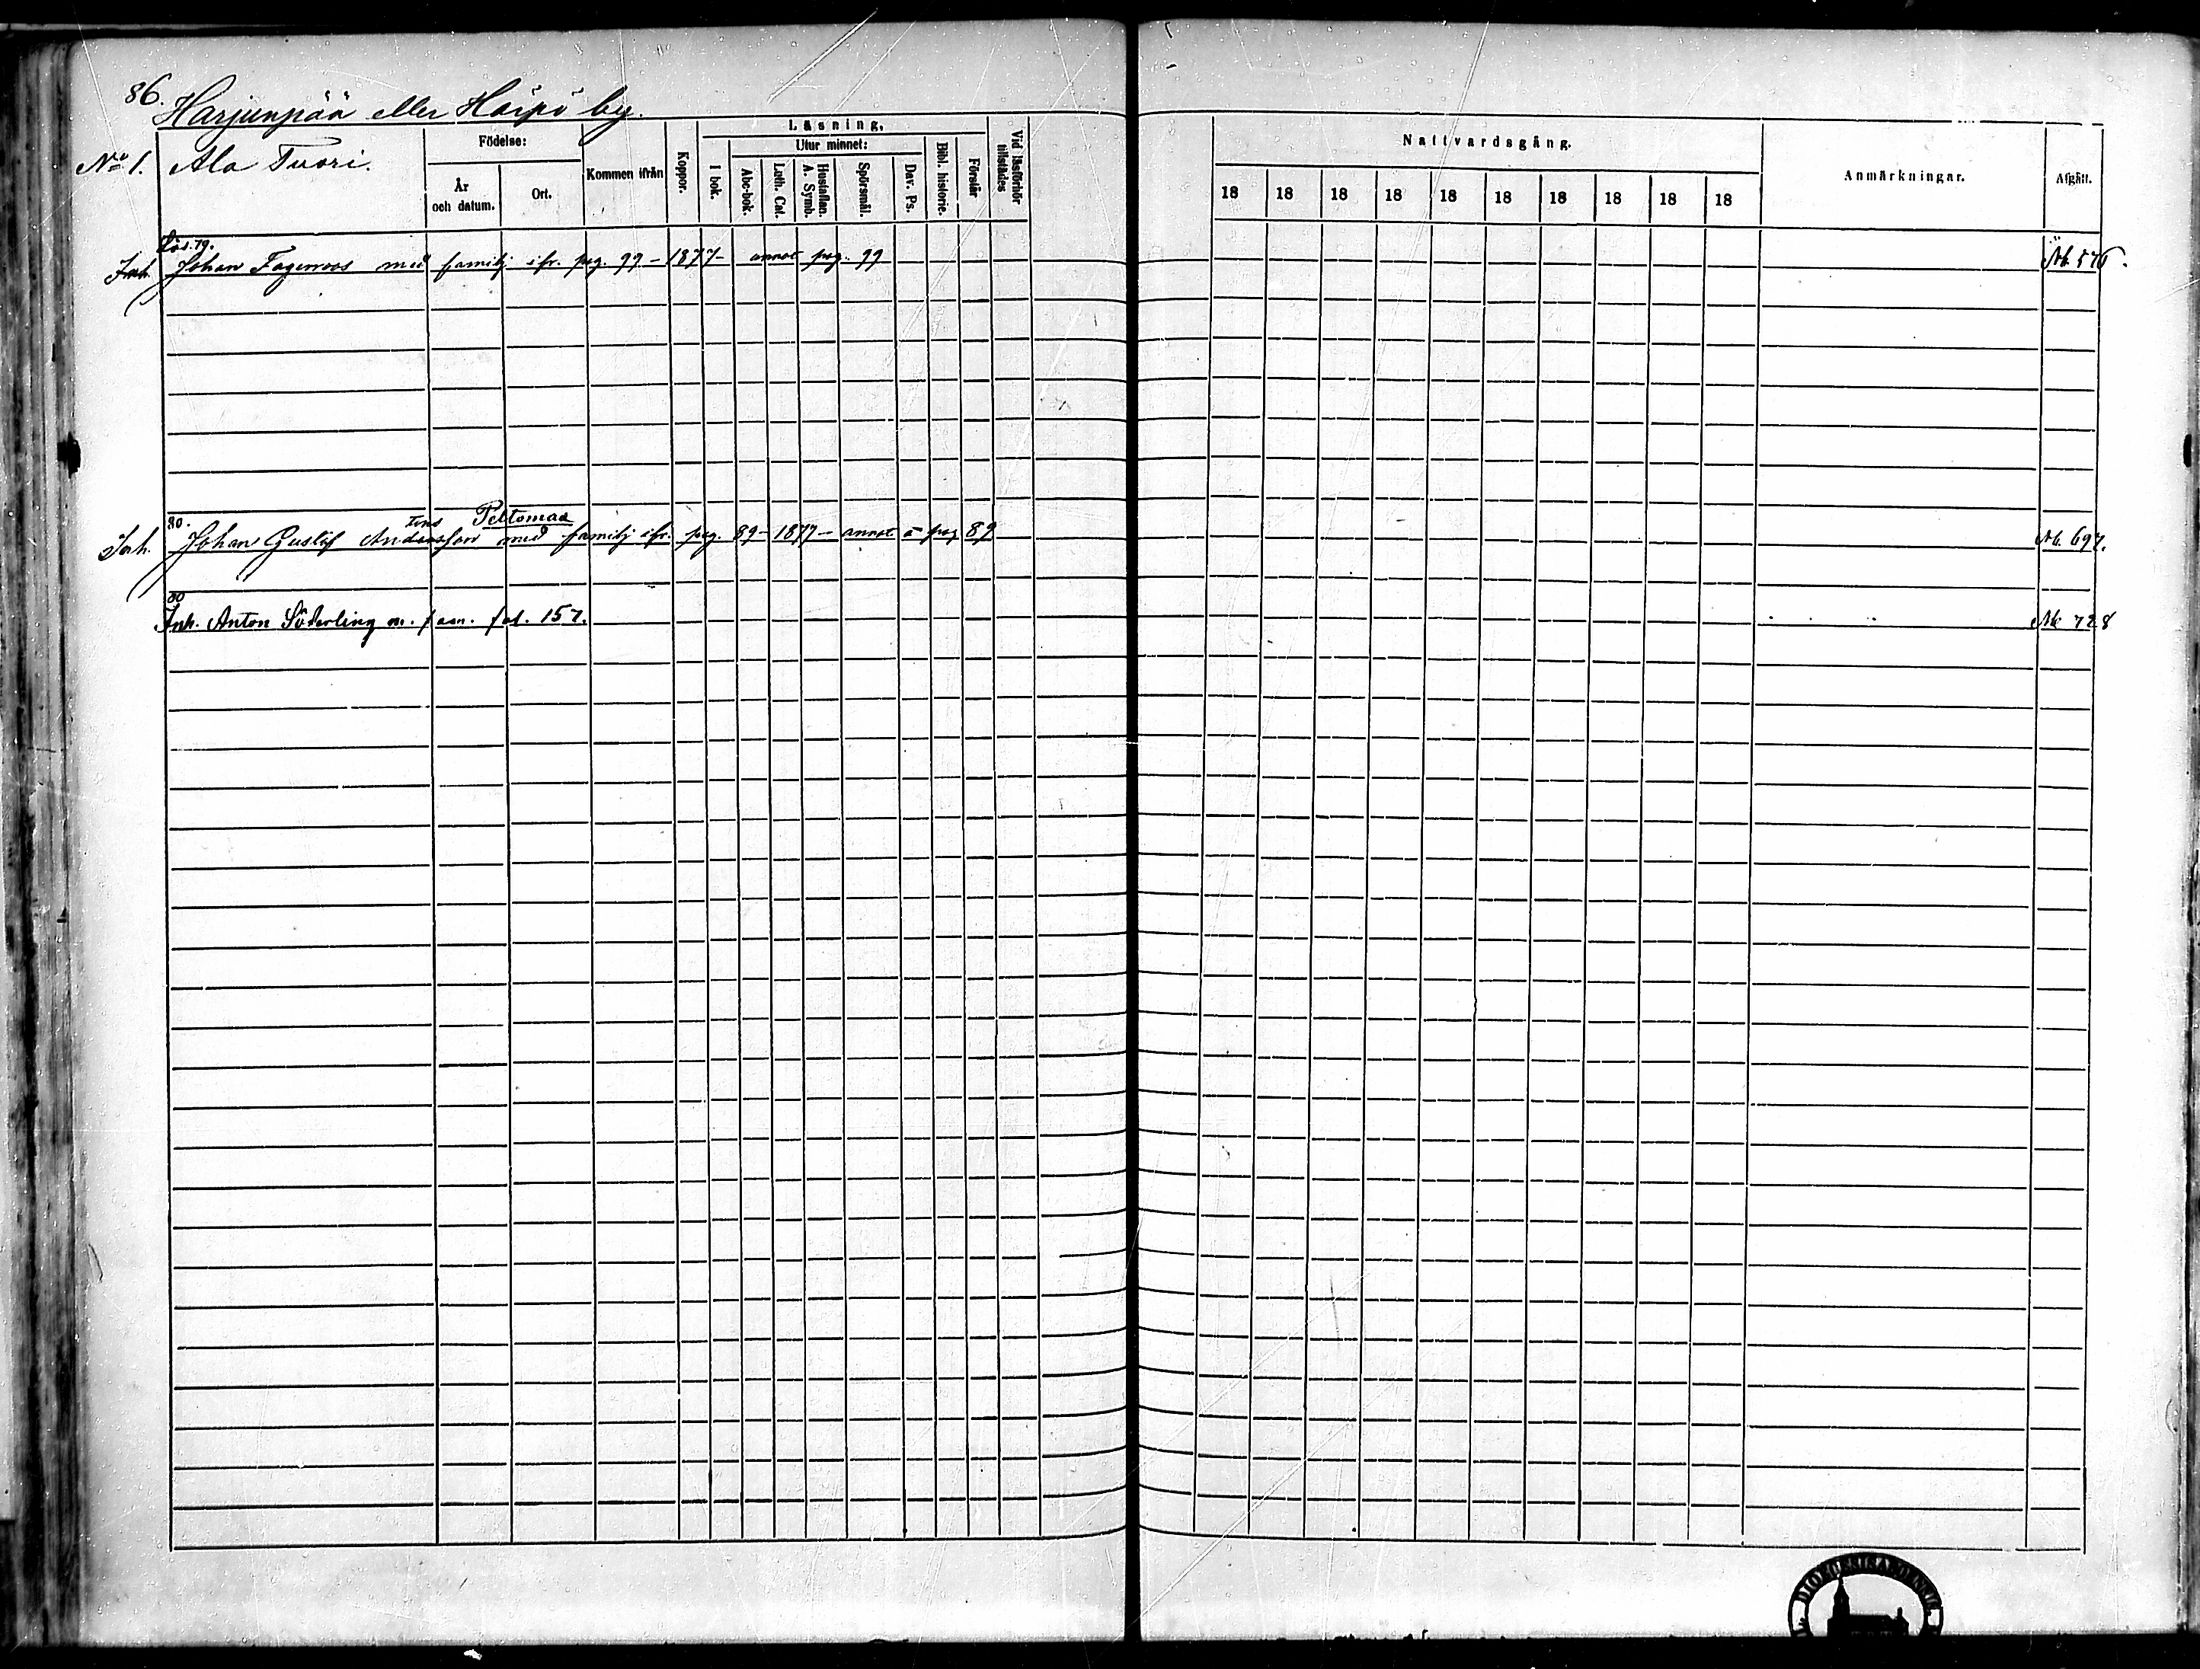 86.
Harjunpää eller Häipö by.
No 1. Ala Tuori.
Födelse:
År och datum.
Ort.
Kommen ifrån
Koppor.
Läsning.
I bok.
Utur minnet:
Abc-bok.
Luth. Cat.
Hustaflan. A. Symb.
Spörsmål.
Dav. Ps.
Bibl. historie.
Förstår
Vid läsförhör tillstädes
Nattvardsgång.
18 18 18 18 18 18 18 18 18 18
Anmärkningar.
Afgått.
79.
Inh. Johan Fagerroos med familj ifr. pag. 99 - 1877 - annot pag. 99
80.
Peltomaa
Inh. Johan Gustaf Andersson med familj ifr. pag. 89 - 1877 - annot å pag 89
697.
80
Inh. Anton Söderling m. fam. fol. 157.
728